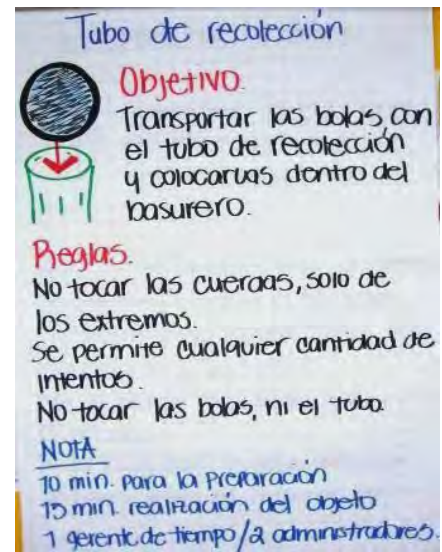 Tubo de recolección
Objetivo.
Transportar las bolas con
el tubo de recolección
y colocarlas dentro del
basurero.
Reglas.
No tocar las cuerdas, solo de
los extremos.
Se permite cualquier cantidad de
intentos.
No tocar las bolas, ni el tubo.
NOTA
10 min. para la preparación
15 min. realización del objeto
1 gerente de tiempo/2 administradores.